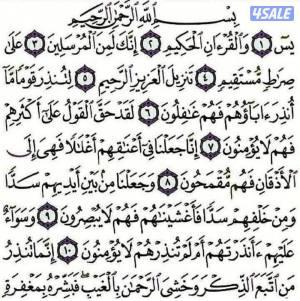 4SALE
بِسْمِ اللَّهِ الرَّحْمَٰنِ الرَّحِيمِ
يسٓ ١ وَالْقُرْءَانِ الْحَكِيمِ ٢ إِنَّكَ لَمِنَ الْمُرْسَلِينَ ٣ عَلَىٰ
صِرَٰطٍ مُّسْتَقِيمٍ ٤ تَنزِيلَ الْعَزِيزِ الرَّحِيمِ ٥ لِتُنذِرَ قَوْمًا مَّا
أُنذِرَ ءَابَآؤُهُمْ فَهُمْ غَٰفِلُونَ ٦ لَقَدْ حَقَّ الْقَوْلُ عَلَىٰٓ أَكْثَرِهِمْ
فَهُمْ لَا يُؤْمِنُونَ ٧ إِنَّا جَعَلْنَا فِىٓ أَعْنَٰقِهِمْ أَغْلَٰلًا فَهِىَ إِلَى
الْأَذْقَانِ فَهُم مُّقْمَحُونَ ٨ وَجَعَلْنَا مِنۢ بَيْنِ أَيْدِيهِمْ سَدًّا
وَمِنْ خَلْفِهِمْ سَدًّا فَأَغْشَيْنَٰهُمْ فَهُمْ لَا يُبْصِرُونَ ٩ وَسَوَآءٌ
عَلَيْهِمْ ءَأَنذَرْتَهُمْ أَمْ لَمْ تُنذِرْهُمْ لَا يُؤْمِنُونَ ١٠ إِنَّمَا تُنذِرُ
مَنِ اتَّبَعَ الذِّكْرَ وَخَشِىَ الرَّحْمَٰنَ بِالْغَيْبِ فَبَشِّرْهُ بِمَغْفِرَةٍ